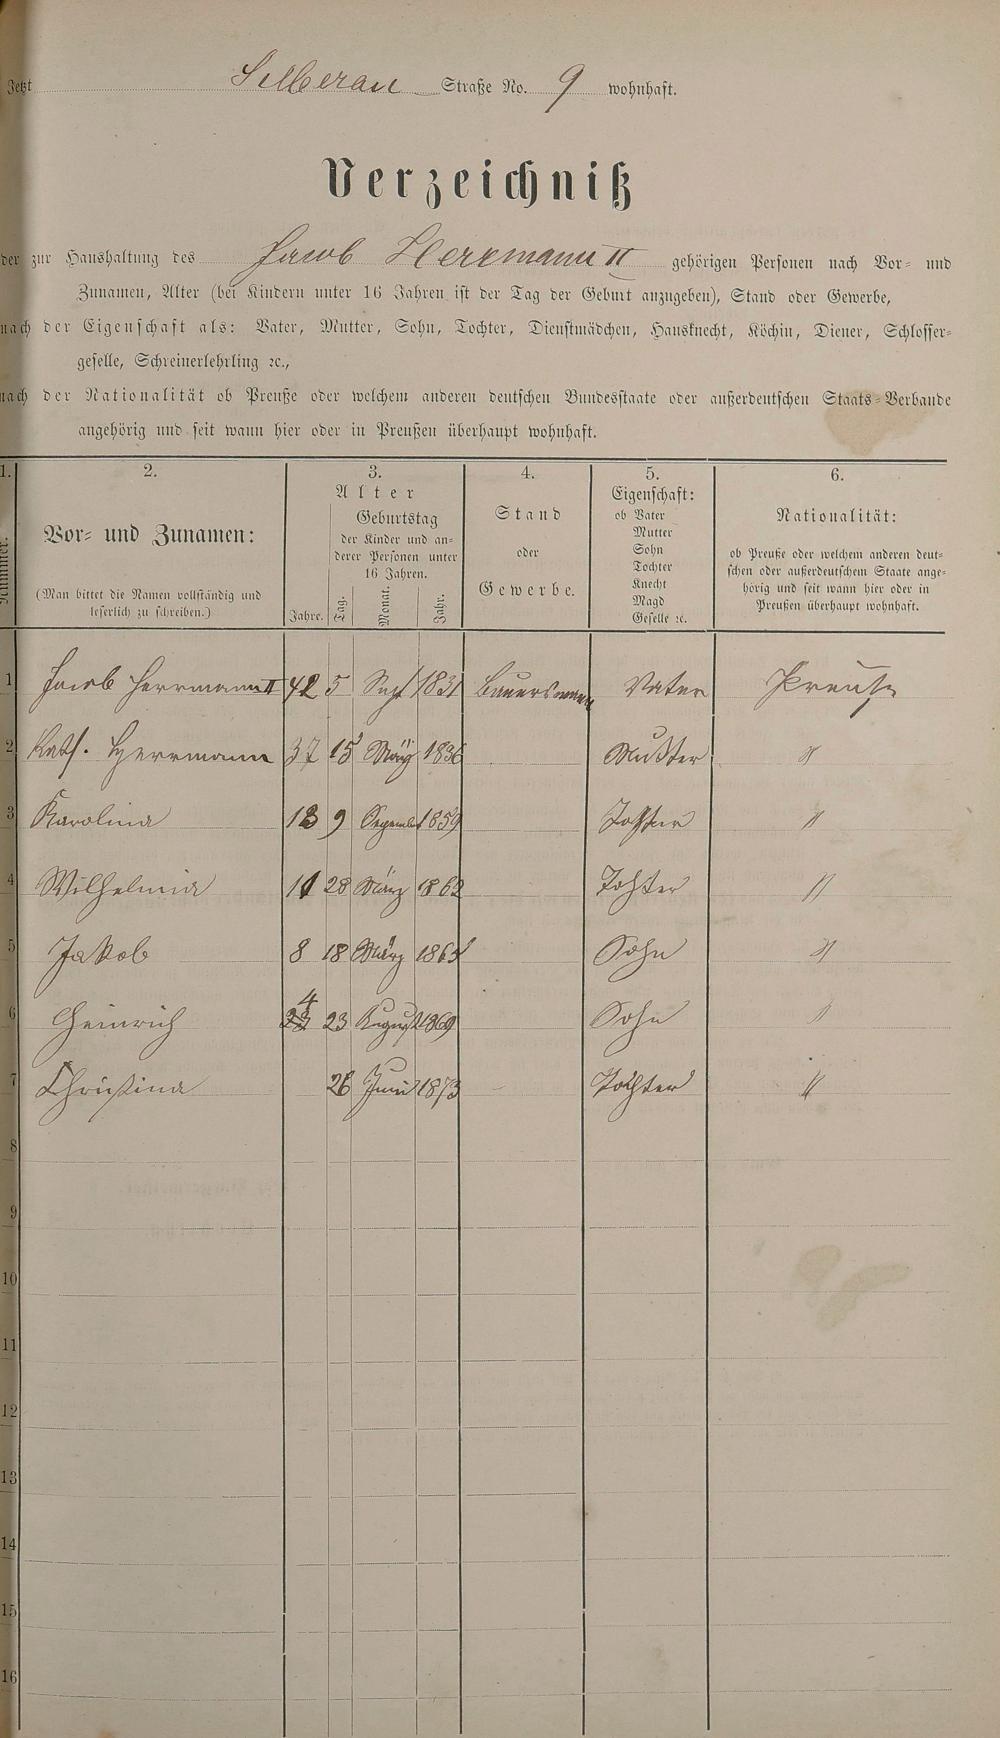 Jetzt Selberau Straße No. 9 wohnhaft.
Verzeichniß
der zur Haushaltung des Jacob Herrmann II gehörigen Personen nach Vor- und
Zunamen, Alter (bei Kindern unter 16 Jahren ist der Tag der Geburt anzugeben), Stand oder Gewerbe,
nach der Eigenschaft als: Vater, Mutter, Sohn, Tochter, Dienstmädchen, Hausknecht, Köchin, Diener, Schlosser-
geselle, Schreinerlehrling ꝛc.,
nach der Nationalität ob Preuße oder welchem anderen deutschen Bundesstaate oder außerdeutschen Staats-Verbande
angehörig und seit wann hier oder in Preußen überhaupt wohnhaft.
1. 2. 3. 4. 5. 6.
Nummer.
Vor- und Zunamen:
(Man bittet die Namen vollständig und
leserlich zu schreiben.)
Alter
Jahre.
Geburtstag
der Kinder und an-
derer Personen unter
16 Jahren.
Tag. Monat. Jahr.
Stand
oder
Gewerbe.
Eigenschaft:
ob Vater
Mutter
Sohn
Tochter
Knecht
Magd
Geselle ꝛc.
Nationalität:
ob Preuße oder welchem anderen deut-
schen oder außerdeutschem Staate ange-
hörig und seit wann hier oder in
Preußen überhaupt wohnhaft.
1 Jacob Herrmann II 42 5 Sept 1831 Bauersmann Vater Preuße
2 Kath. Herrmann 37 15 März 1836 Mutter "
3 Karolina 13 9 1859 Tochter "
4 Wilhelmina 11 28 März 1862 Tochter "
5 Jakob 8 18 März 1865 Sohn "
6 Heinrich 4 23 August 1869 Sohn "
7 Christina 26 Juni 1873 Tochter "
8
9
10
11
12
13
14
15
16